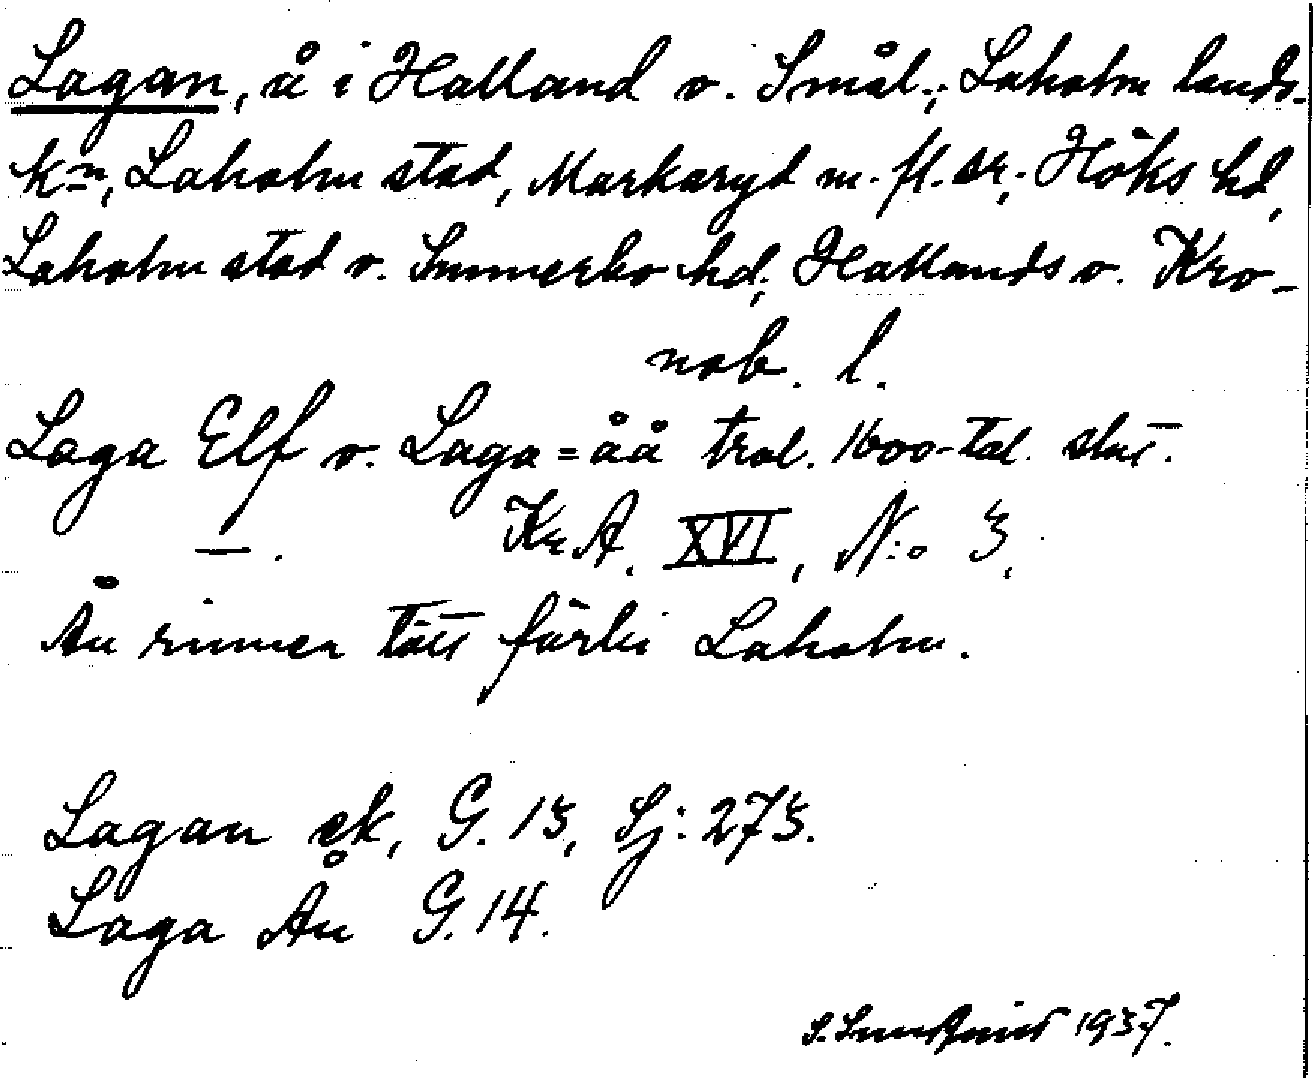 Lagan, å i Halland o. Smål.; Laholm lands-
k:n, Laholm stad, Markaryd m. fl. sr; Höks hd,
Laholm stad o. Sunnerbo hd; Hallands o. Kro-
nob. l.
Laga Elf o. Laga=åå trol. 1600-tal. slut.
— . KrA. XVI, N:o 3.
Ån rinner tätt förbi Laholm.
Lagan ek, G. 13, Sj: 273.
Laga Ån G. 14.
1937.